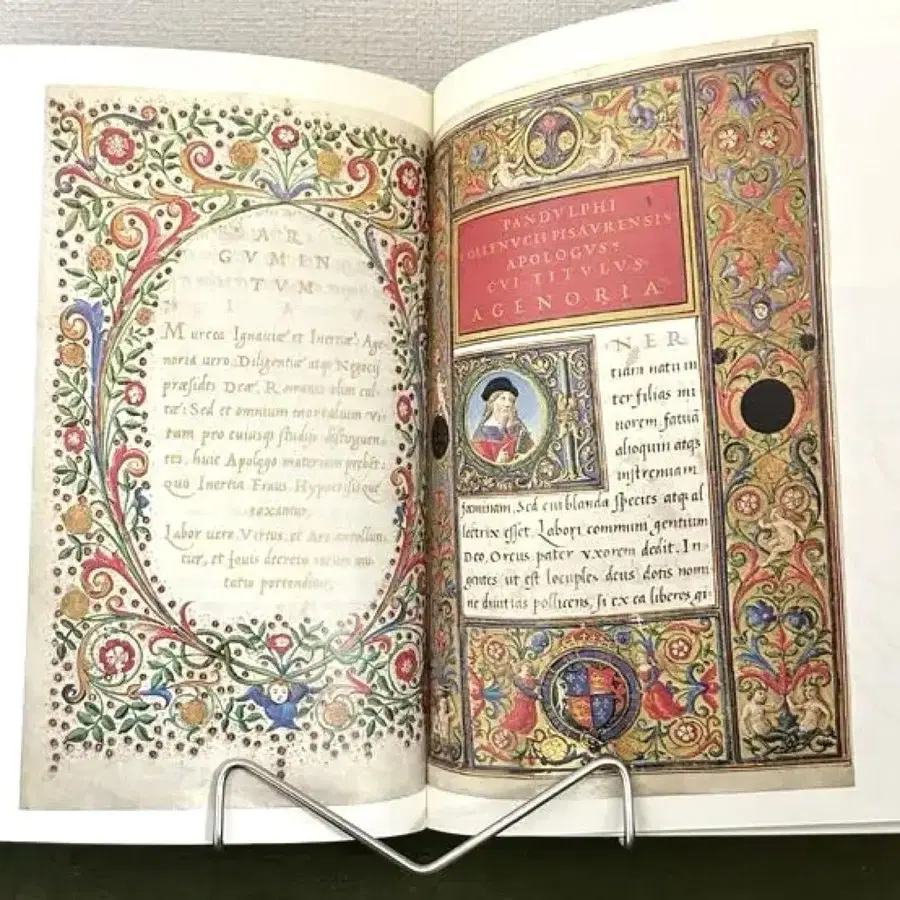 AR
GVMEN
TVM
Murcea Ignauiæ et Inertiæ: Age
noria uero Diligentiæ atq Negocij
præsides Deæ, Romanis olim cul
tæ: Sed et omnium mortalium vi
tam pro cuiusq studijs distinguen
tes, huic Apologo materiam prebēt:
Quo Inertia Fraus, Hypocrisisque
taxantur,
Labor uero, Virtus, et Ars extollun
tur, et Iouis decreto rerum mu
tatio portenditur.
PANDVLPHI
COLLENVCII PISAVRENSIS
APOLOGVS
CVI TITVLVS
AGENORIA
INER
tiam natu in
ter filias mi
norem, fatuā
alioquin atqs
instrenuam
fæminam, Sed cui blanda species atq al
lectrix esset, Labori communi gentium
Deo, Orcus pater vxorem dedit. In
gentes ut est locuples deus dotis nomi
ne diuitias pollicens, si ex ea liberos gi